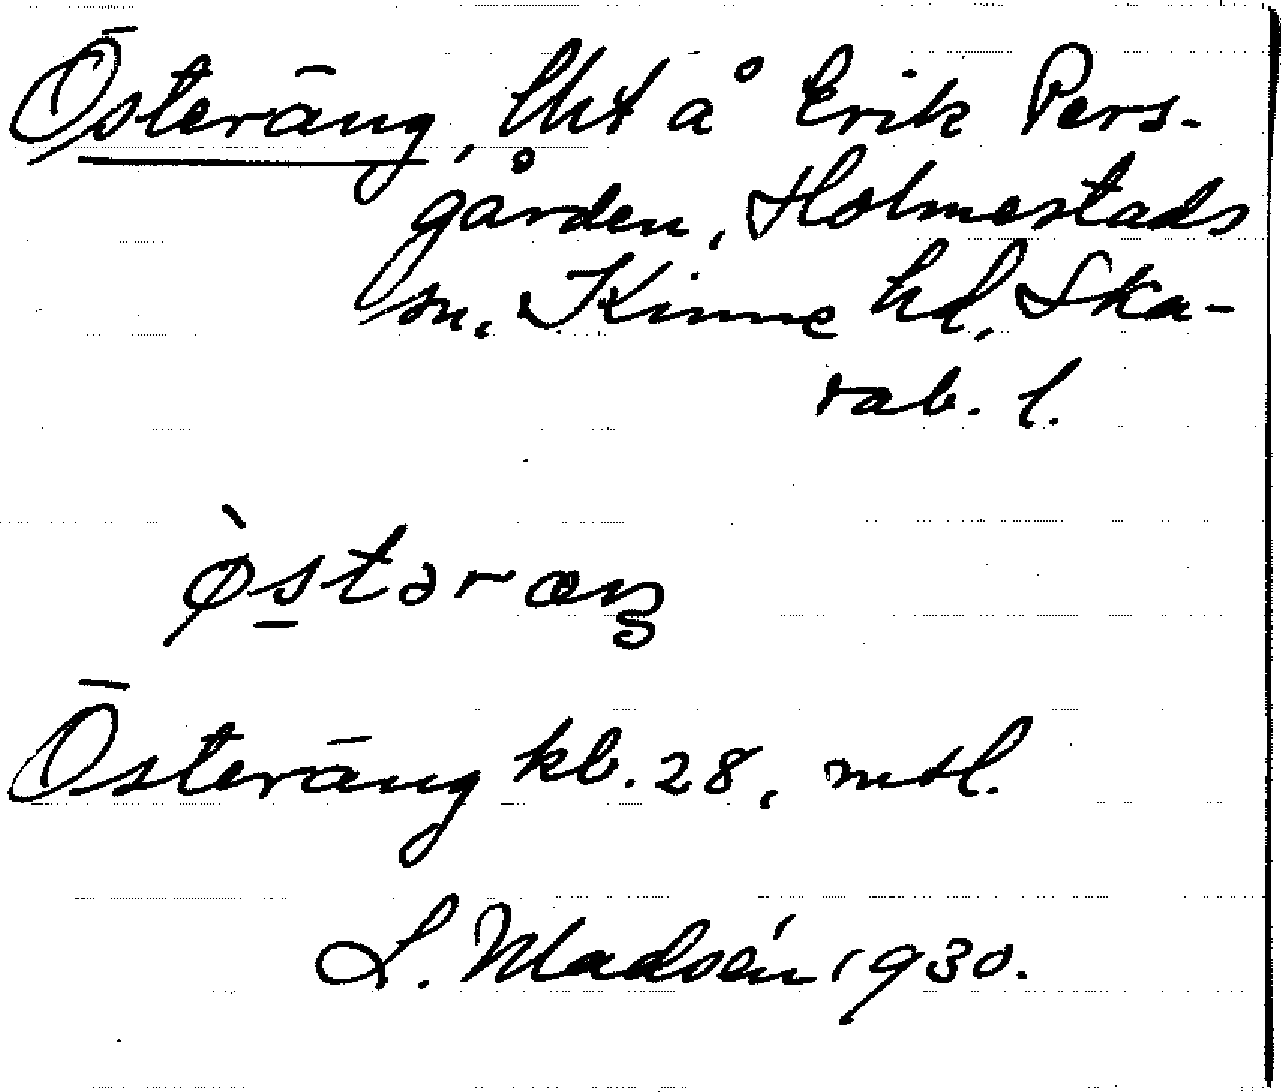 Österäng, lht å Erik Pers-
gården, Holmestads
sn, Kinne hd, Ska-
rab. l.
ø̀stəræŋ
Österäng kb. 28, mtl.
L. Madsén 1930.